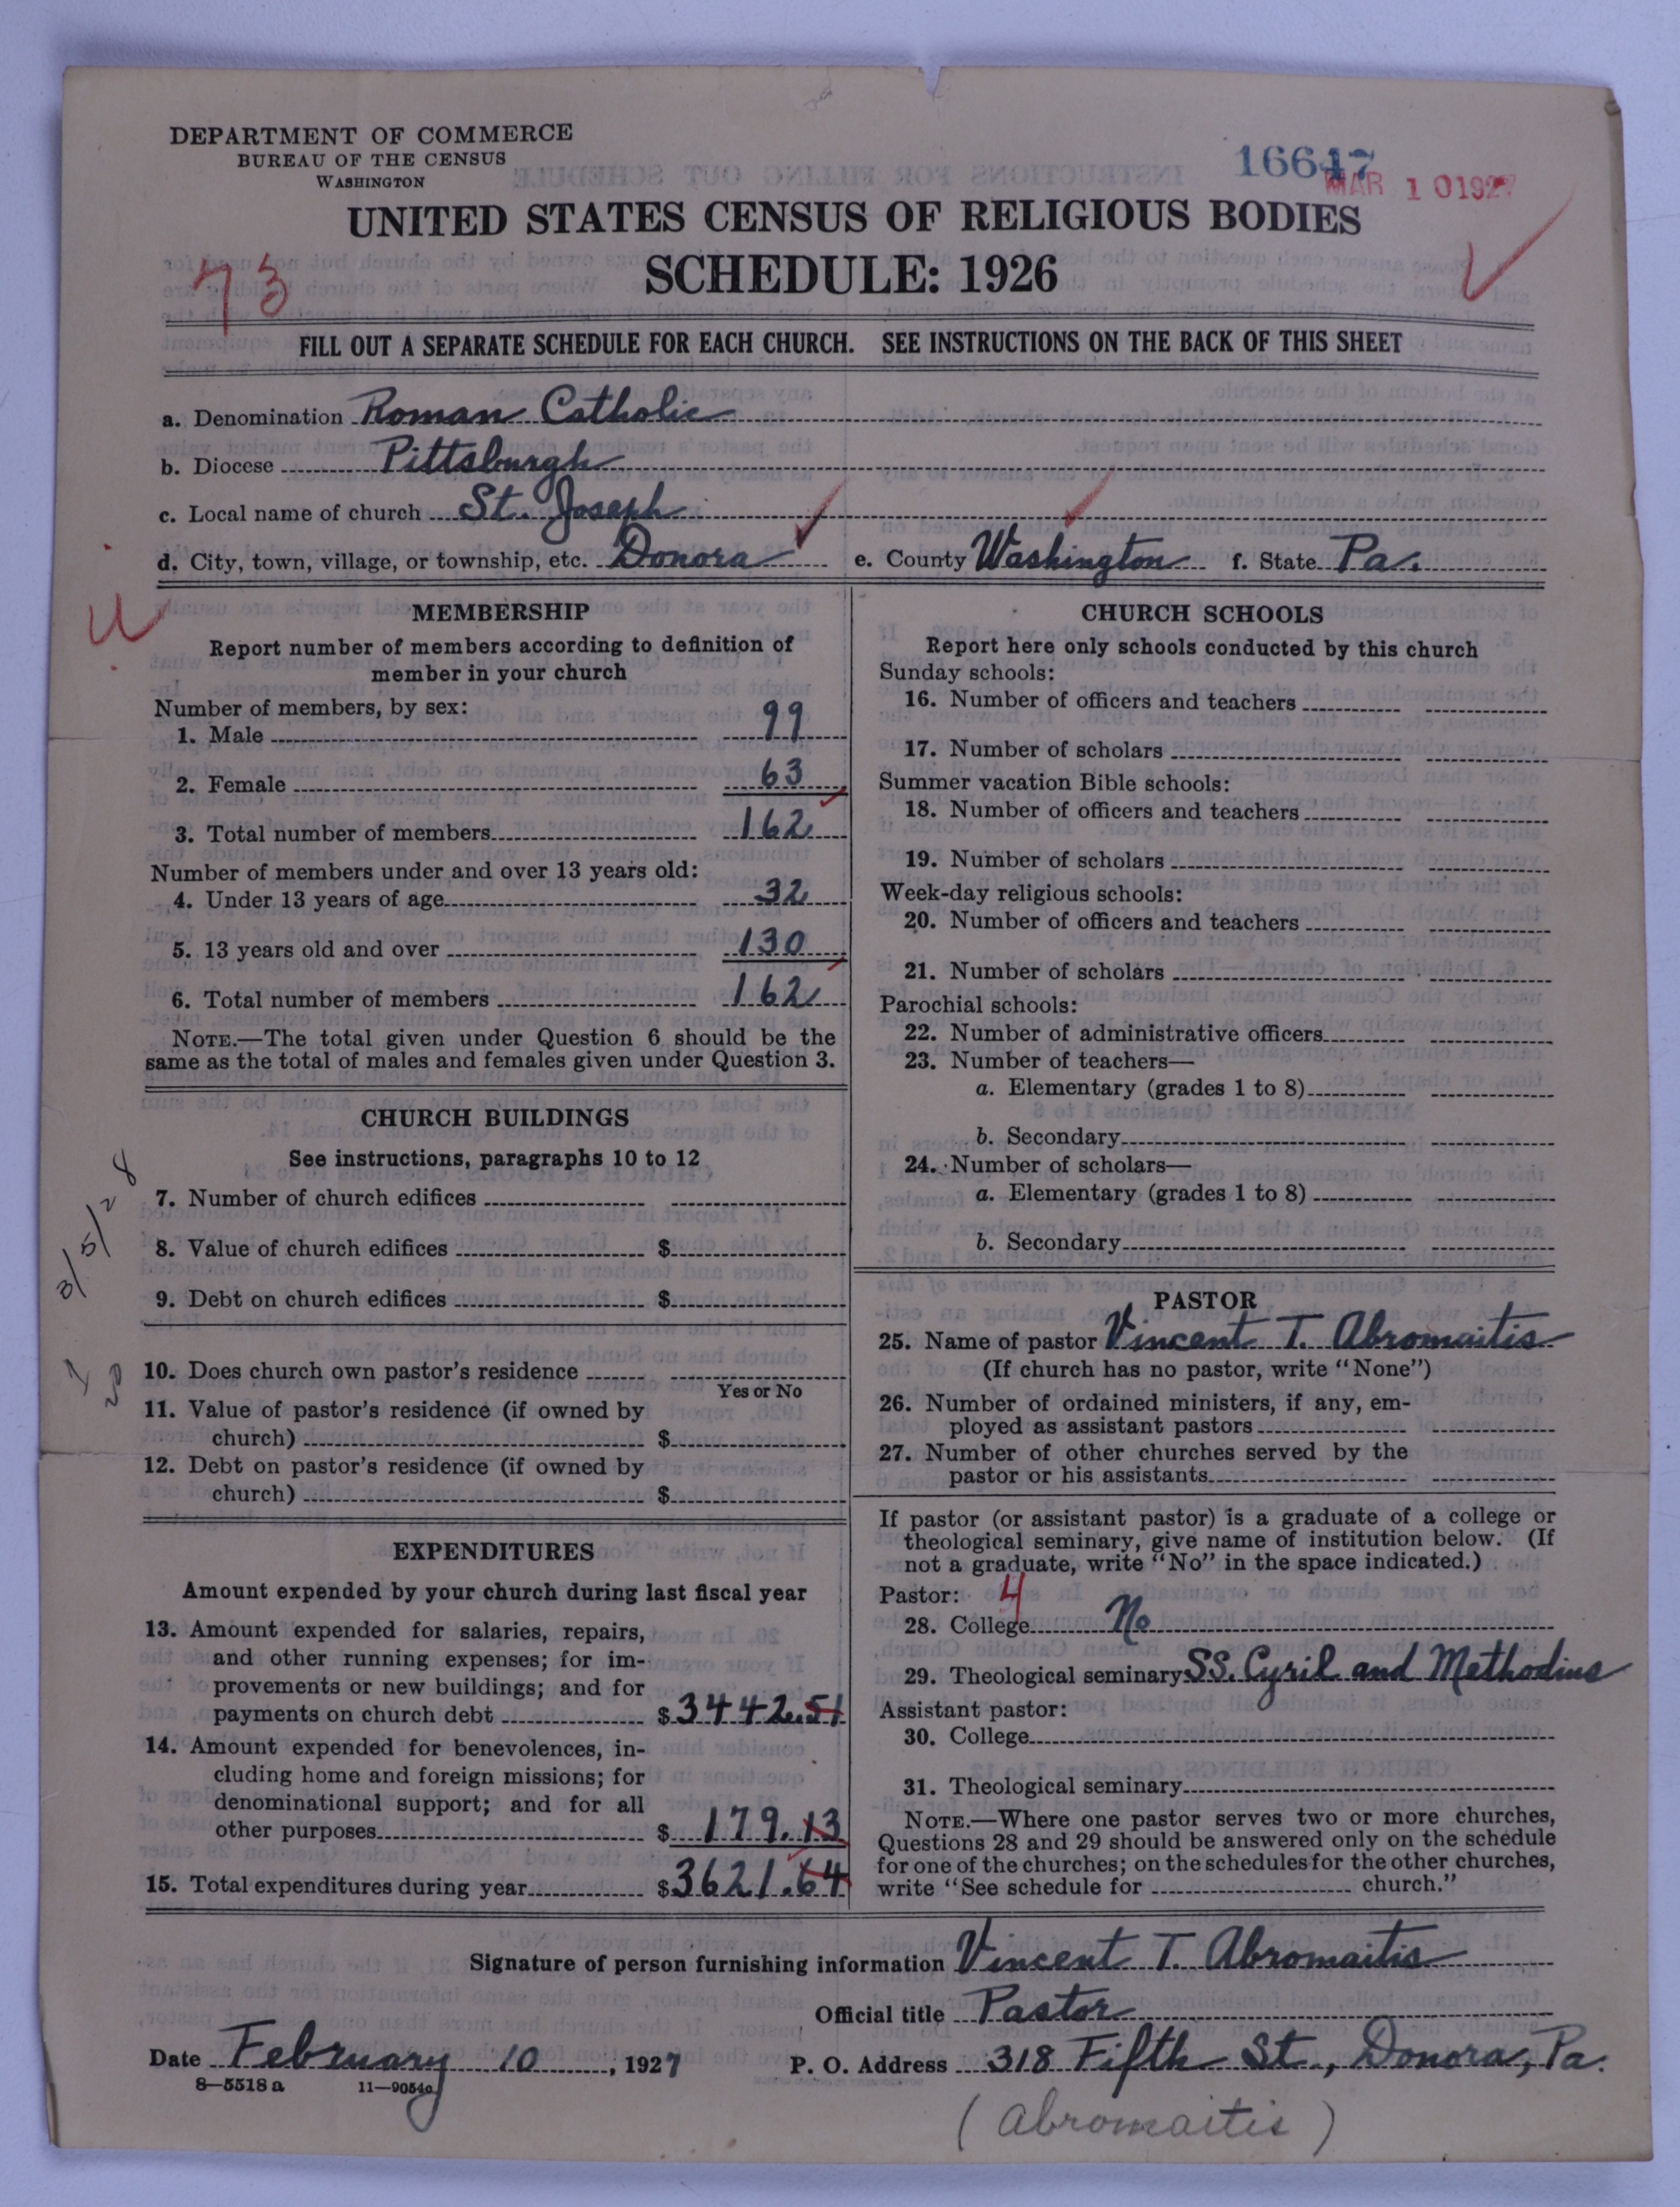 DEPARTMENT OF COMMERCE
BUREAU OF THE CENSUS
WASHINGTON
16647
MAR 10 1927
UNITED STATES CENSUS OF RELIGIOUS BODIES
SCHEDULE: 1926
73
FILL OUT A SEPARATE SCHEDULE FOR EACH CHURCH. SEE INSTRUCTIONS ON THE BACK OF THIS SHEET
a. Denomination Roman Catholic
b. Diocese Pittsburgh
c. Local name of church St. Joseph
d. City, town, village, or township, etc. Donora e. County Washington f. State Pa.
MEMBERSHIP
Report number of members according to definition of
member in your church
Number of members, by sex:
1. Male 99
2. Female 63
3. Total number of members 162
Number of members under and over 13 years old:
4. Under 13 years of age 32
5. 13 years old and over 130
6. Total number of members 162
NOTE.—The total given under Question 6 should be the
same as the total of males and females given under Question 3.
CHURCH BUILDINGS
See instructions, paragraphs 10 to 12
7. Number of church edifices
8. Value of church edifices $
9. Debt on church edifices $
3/5/28
10. Does church own pastor's residence
Yes or No
11. Value of pastor's residence (if owned by
church) $
12. Debt on pastor's residence (if owned by
church) $
20
EXPENDITURES
Amount expended by your church during last fiscal year
13. Amount expended for salaries, repairs,
and other running expenses; for im-
provements or new buildings; and for
payments on church debt $ 3442.51
14. Amount expended for benevolences, in-
cluding home and foreign missions; for
denominational support; and for all
other purposes $ 179.13
15. Total expenditures during year $ 3621.64
CHURCH SCHOOLS
Report here only schools conducted by this church
Sunday schools:
16. Number of officers and teachers
17. Number of scholars
Summer vacation Bible schools:
18. Number of officers and teachers
19. Number of scholars
Week-day religious schools:
20. Number of officers and teachers
21. Number of scholars
Parochial schools:
22. Number of administrative officers
23. Number of teachers—
a. Elementary (grades 1 to 8)
b. Secondary
24. Number of scholars—
a. Elementary (grades 1 to 8)
b. Secondary
PASTOR
25. Name of pastor Vincent T. Abromaitis
(If church has no pastor, write "None")
26. Number of ordained ministers, if any, em-
ployed as assistant pastors
27. Number of other churches served by the
pastor or his assistants
If pastor (or assistant pastor) is a graduate of a college or
theological seminary, give name of institution below. (If
not a graduate, write "No" in the space indicated.)
Pastor: 4
28. College No
29. Theological seminary SS. Cyril and Methodius
Assistant pastor:
30. College
31. Theological seminary
NOTE.—Where one pastor serves two or more churches,
Questions 28 and 29 should be answered only on the schedule
for one of the churches; on the schedules for the other churches,
write "See schedule for church."
Signature of person furnishing information Vincent T. Abromaitis
Official title Pastor
Date February 10, 1927 P. O. Address 318 Fifth St., Donora, Pa.
8—5518a 11—9054a
(Abromaitis)